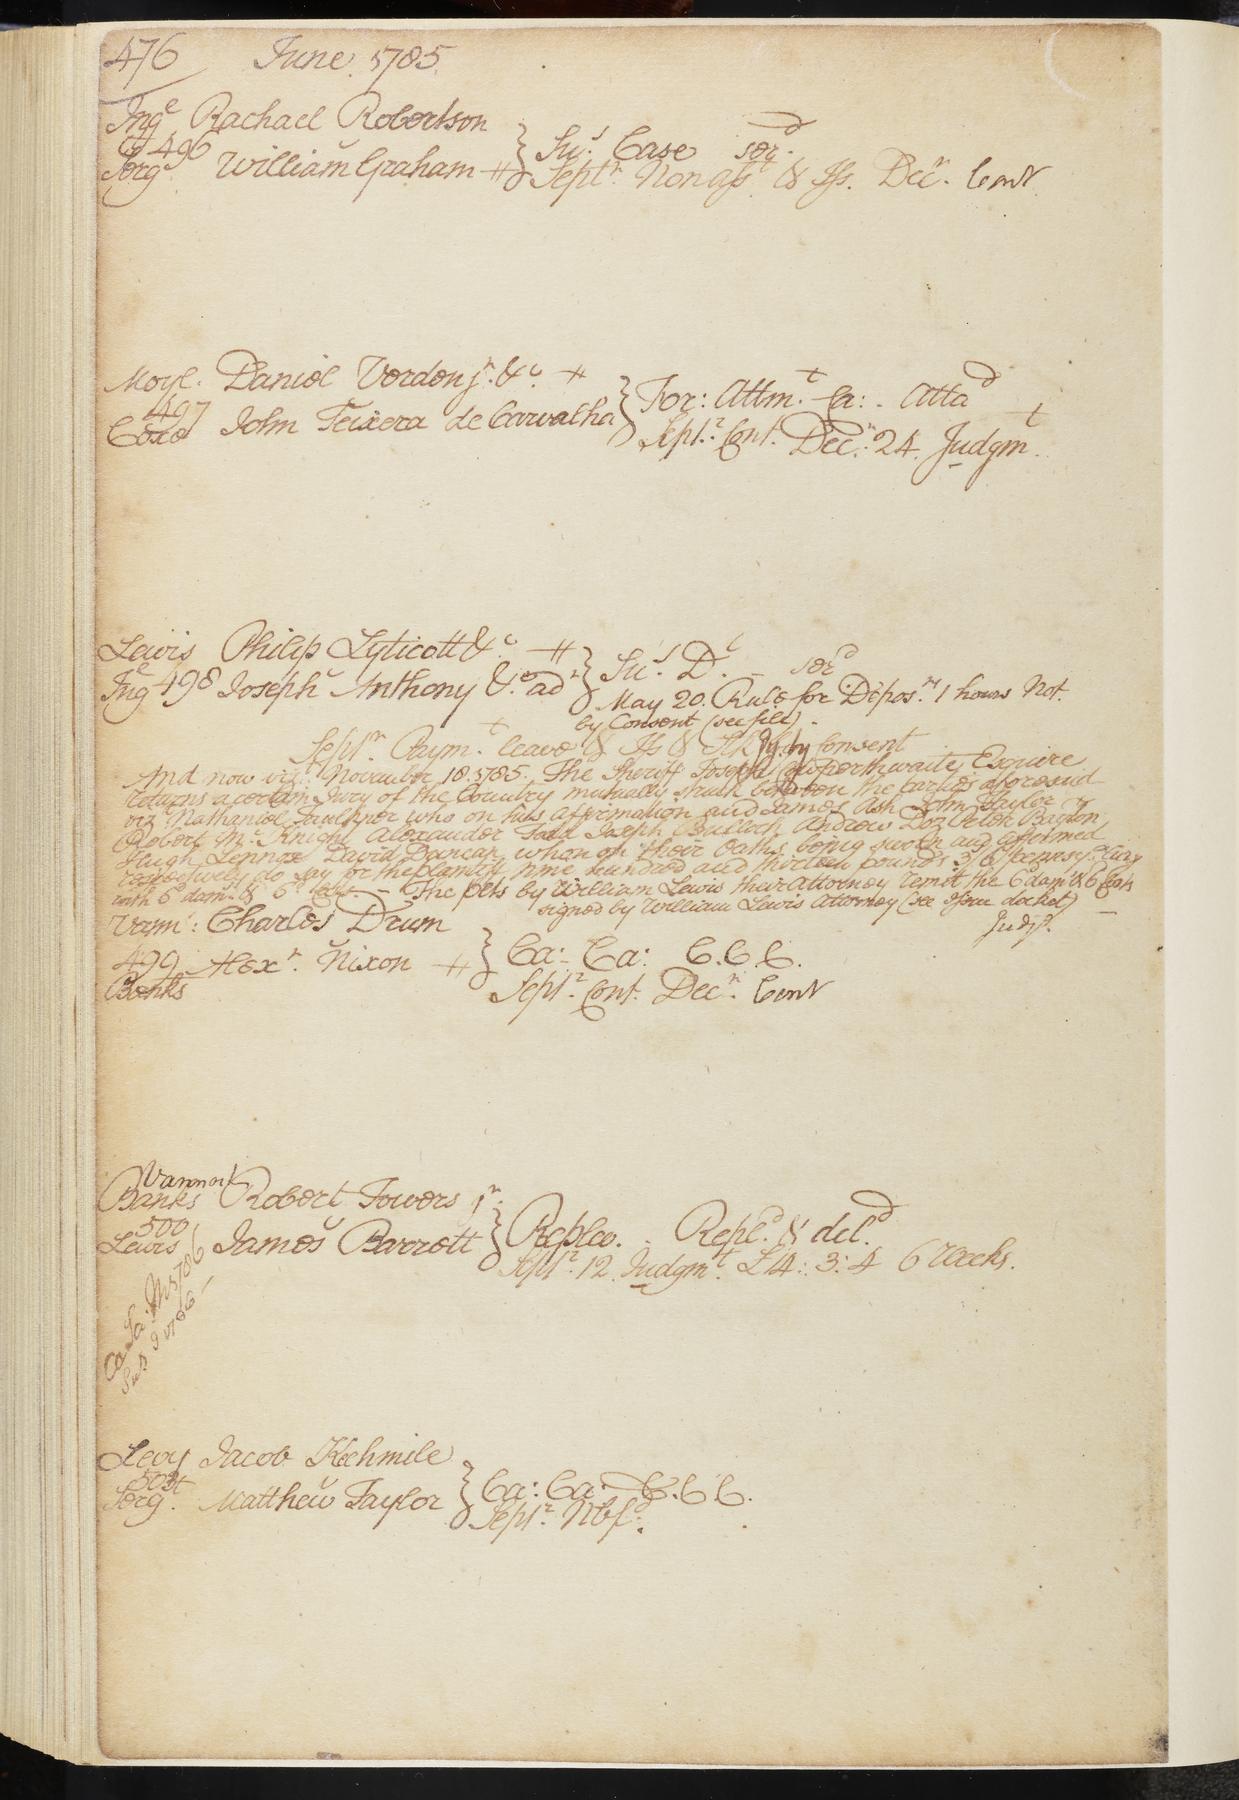 476 June 1785
Ing.e Rachael Robertson
496 } Su.s Case ser.d
Serg.t William Graham Sept.r Non ass.t & Iss. Dec.r Cont
Moyl. Daniel Verdon j.r &c.
497 } For: Attm.t Ca: - Atta.d
Coxe John Teixera de Carvalha Sept.r Cont. Dec.r 24 Judgm.t
Lewis Philip Lyticott &c.
Ing.e 498 Joseph Anthony &c. ad } Su.s D.o - ser.d
May 20. Rule for Depos.ns 1 hours Not.
by Consent (see file).
Sept.r Paym.t leave & Iss & by Consent
And now viz.t November 18. 1785. The Sheriff Joseph Cowperthwaite Esquire
returns a certain Jury of the Country mutually struck between the parties aforesaid
viz Nathaniel Faulkner who on his affirmation and James Ash John Taylor
Robert M.cKnight Alexander Todd Joseph Bullock Andrew Doz Peter Baynton
Hugh Lennox David Duncan whon on their Oaths being sworn and affirmed
respectively do say for the plaintiff nine hundred and thirteen pounds 3/6
with 6.d dam.s & 6.d Costs - The plts by William Lewis their Attorney remit the 6 dam.s & 6 Costs
signed by William Lewis Attorney (see Issue docket)
Judg.t
Vann: Charles Drum
499 Alex.r Nixon } Ca: Ca: C.C.C.
Banks Sept.r Cont. Dec.r Cont
Vannost
Banks Robert Towers j.r
500 } Replev. - Repl.d & del.d
Lewis James Barrett Sept.r 12 Judgm.t £14:3:4 6 Weeks.
Ca Sa: M 1786
Levy Jacob Kechmile
} Ca: Ca: C.C.C.
Serg.t Matthew Taylor Sept.r Nbf.d